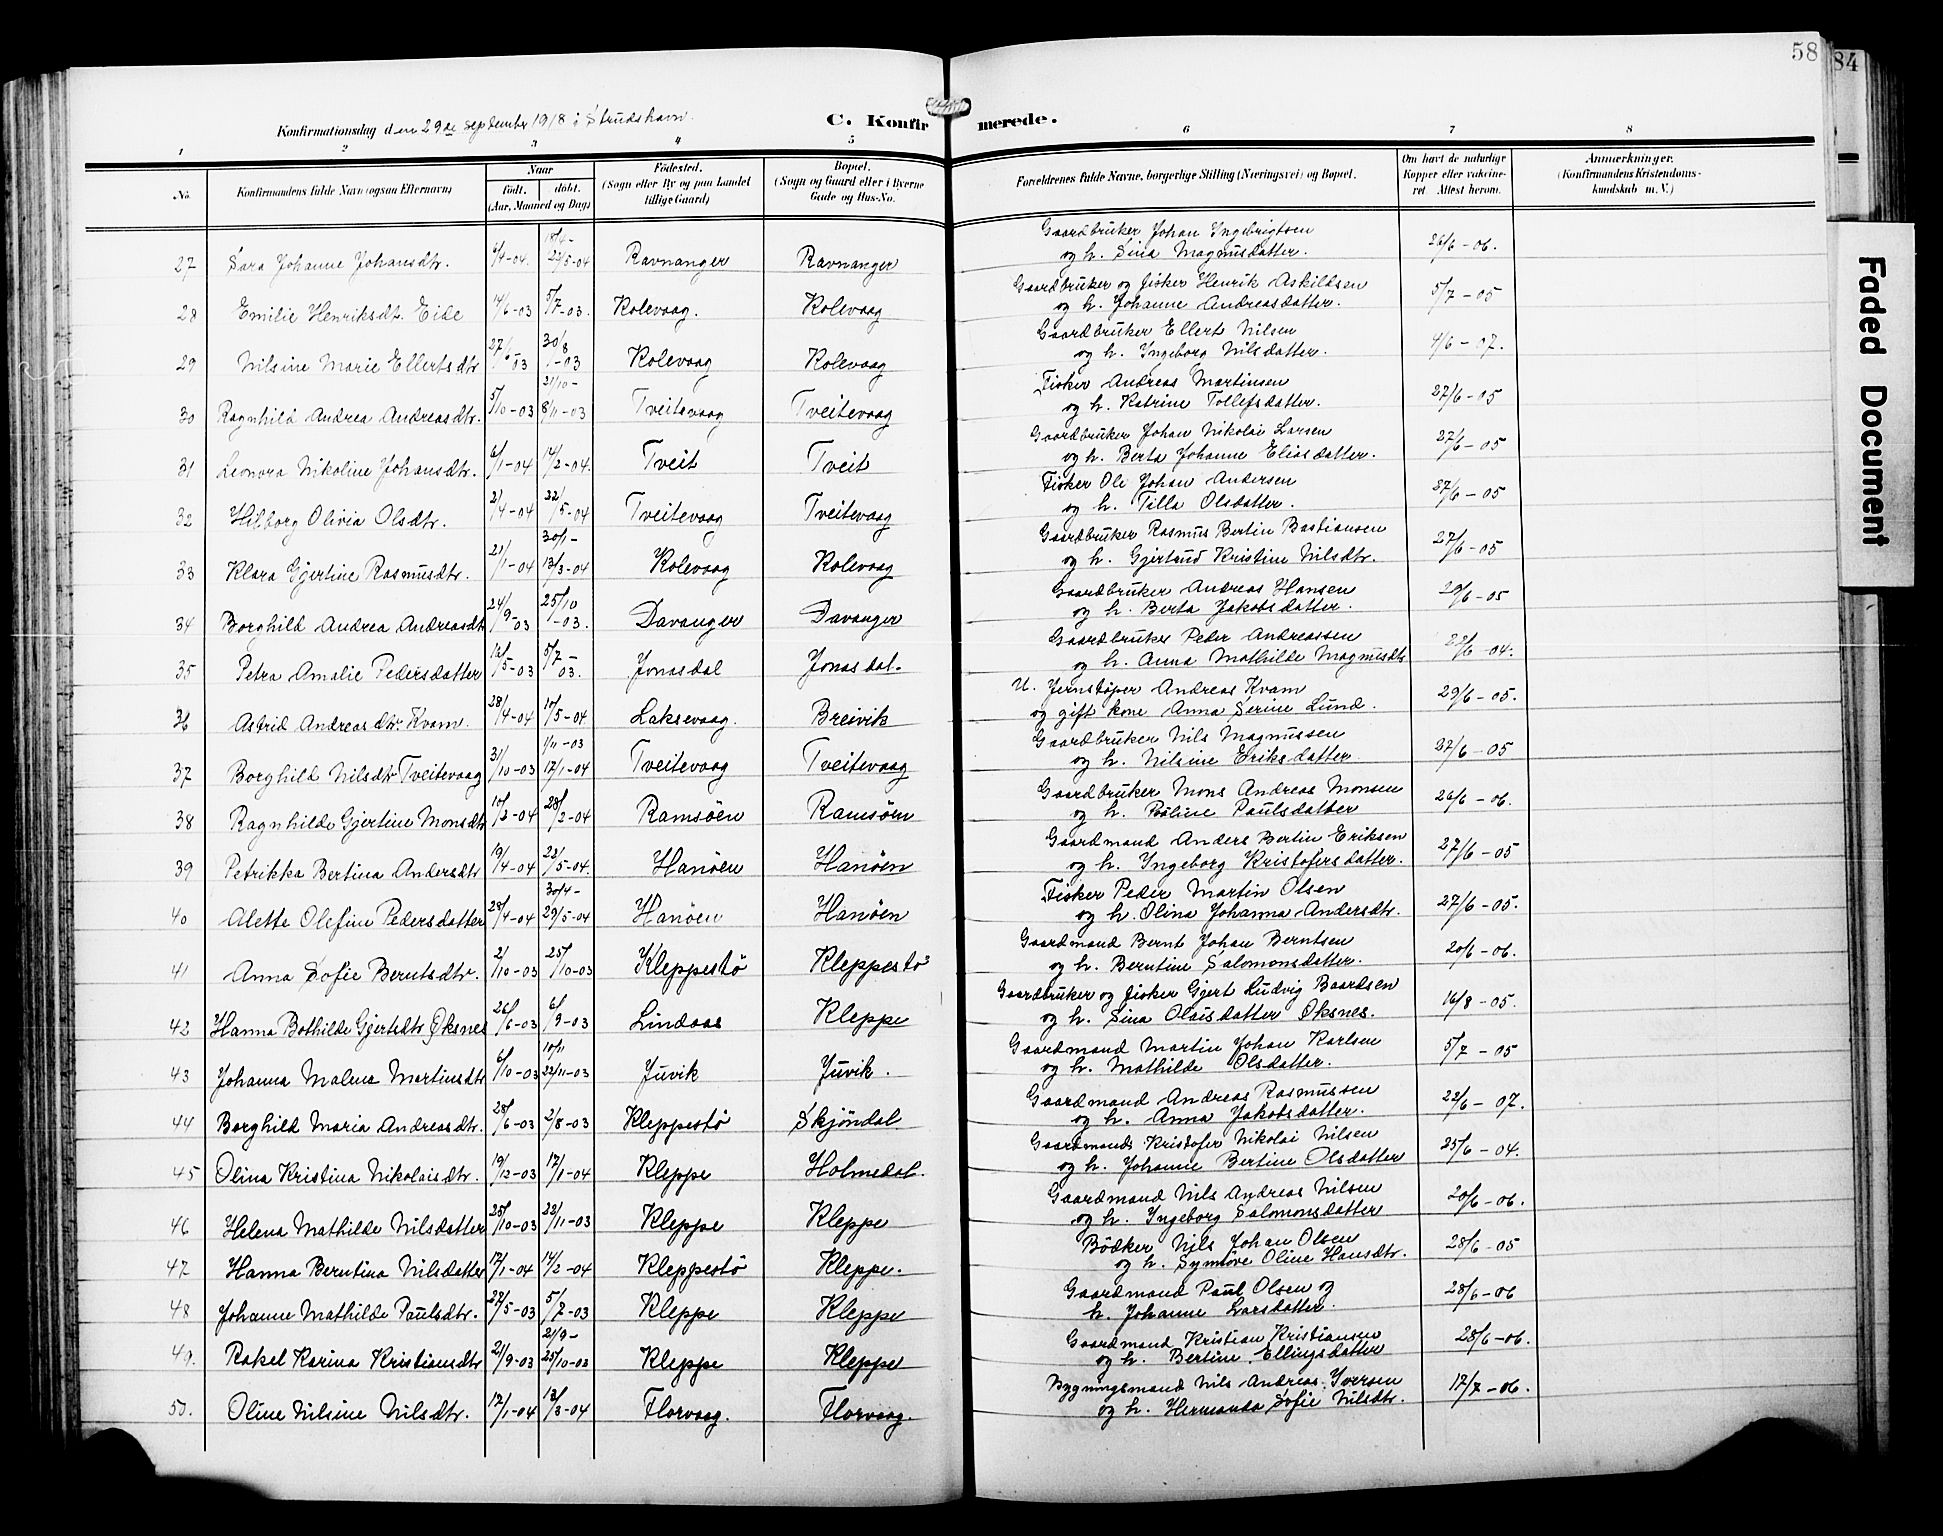 58
84
Faded Document
Konfirmationsdag den 29de september 1918 i Strudshavn.
C. Konfirmerede.
1 2 3 4 5 6 7 8
No. Konfirmandens fulde Navn (ogsaa Efternavn) Naar født. døbt. (Aar, Maaned og Dag) Födested. (Sogn eller By og paa Landet tillige Gaard) Bopæl. (Sogn og Gaard eller i Byerne Gade og Hus-No. Forældrenes fulde Navne, borgerlige Stilling (Næringsvei) og Bopæl. Om havt de naturlige Kopper eller vaccineret Attest herom. Anmærkninger. (Konfirmandens Kristendomskundskab m. V.)
27 Sara Johanne Johansdtr. 6/4-04. 22/5-04 Ravnanger Ravnanger Gaardbruker Johan Ingebrigtsen
og h. Sina Magnusdatter. 26/6-06.
28 Emilie Henriksdt. Eide 14/6-03 5/7-03. Kolevaag. Kolevaag Gaardbruker og fisker Henrik Askildsen
og h. Johanne Andreasdatter. 5/7-05
29 Nilsine Marie Ellertsdtr 27/6-03 30/8-03 Kolevaag Kolevaag Gaardbruker Ellert Nilsen
og h. Ingeborg Nilsdatter. 4/6-07.
30 Ragnhild Andrea Andreasdtr. 5/10-03 21/10- 8/11-03 Tveitevaag Tveitevaag Fisker Andreas Martinsen
og h. Katrine Tollefsdatter. 27/6-05
31 Leonora Nikoline Johansdtr. 6/1-04 14/2-04. Tveit Tveit Gaardbruker Johan Nikolai Larsen
og h. Berta Johanne Eliasdatter. 27/6-05
32 Hilborg Olivia Olsdtr. 2/4-04 22/5-04 Tveitevaag Tveitevaag Fisker Ole Johan Andersen
og h. Tilla Olsdatter. 27/6-05
33 Klara Gjertine Rasmusdtr. 21/1-04 30/1- 13/3-04 Kolevaag Kolevaag Gaardbruker Rasmus Bertin Bastiansen
og h. Gjertrud Kristine Nilsdtr. 27/6-05
34 Borghild Andrea Andreasdt 24/9-03 25/10-03. Davanger Davanger Gaardbruker Andreas Hansen
og h. Berta Jakobsdatter. 29/6-05
35 Petra Amalie Pedersdatter 5-03 5/7-03. Jonasdal Jonasdal. Gaardbruker Peder Andreassen
og h. Anna Mathilde Magnusdtr 6-04.
36 Astrid Andreasdtr. Kvam. 28/4-04 10/5-04 Laksevaag. Breivik U. Jernstøper Andreas Kvam
og gift kone Anna Serine Lund. 29/6-05.
37 Borghild Nilsdtr Tveitevaag 31/10-03 1/11-03 17/1-04 Tveitevaag Tveitevaag Gaardbruker Nils Magnussen
og h. Nilsine Eriksdatter 27/6-05
38 Ragnhilde Gjertine Monsdtr 10/2-04 28/2-04 Ramsöen Ramsöen Gaardbruker Mons Andreas Monsen
og h. Paulsdatter 26/6-06.
39 Petrikka Bertina Andersdtr 19/4-04 22/5-04. Hanöen Hanöen Gaardmand Anders Bertin Eriksen
og h. Ingeborg Kristofersdatter. 27/6-05
40 Alette Olefine Pedersdatter 28/4-04 30/4- 29/5-04 Hanöen Hanöen Fisker Peder Martin Olsen
og h. Olina Johanna Andersdtr. 27/6-05.
41 Anna Sofie Berntsdtr. 2/10-03 25/10-03 Kleppestö Kleppestö Gaardmand Bernt Johan Berntsen
og h. Berntine Salomonsdatter. 20/6-06.
42 Hanna Bothilde Gjertsdtr Øksnes 26/6-03 6/9-03 Lindaas Kleppe Gaardbruker og fisker Gjert Ludvig Baardsen
og h. Sina Olaisdatter Øksnes. 16/8-05.
43 Johanna Malena Martinsdtr 6/10-03 10/11 22/11-03 Juvik Juvik. Gaardmand Martin Johan Karlsen
og h. Mathilde Olsdatter. 5/7-05
44 Borghild Maria Andreasdtr. 28/6-03 2/8-03 Kleppestö Skjöndal Gaardmand Andreas Rasmussen
og h. Anna Jakobsdatter. 22/6-07.
45 Olina Kristina Nikolaisdtr. 19/12-03 17/1-04 Kleppe Holmedal. Gaardmand Kristofer Nikolai Nilsen
og h. Johanne Bertine Olsdatter 25/6-04.
46 Helena Mathilde Nilsdatter 25/10-03 22/11-03 Kleppe Kleppe Gaardmand Nils Andreas Nilsen
og h. Ingeborg Salomonsdatter 20/6-06.
47 Hanna Berntina Nilsdatter 17/1-04 14/2-04 Kleppestö Kleppe. Bödker Nils Johan Olsen
og h. Synnöve Oline Hansdtr. 28/6-05
48 Johanne Mathilde Paulsdtr. 27/5-03 5/7-03 Kleppe Kleppe Gaardmand Paul Olsen og
h. Johanne Larsdatter. 28/6-06
49. Rakel Karina Kristiansdtr 21/9-03 21/9- 25/10-03 Kleppe Kleppe Gaardmand Kristian Kristiansen
og h. Bertine Ellingsdatter 28/6-06.
50. Oline Nilsine Nilsdtr. 12/1-04 13/3-04 Florvaag. Florvaag. Bygningsmand Nils Andreas Iversen
og h. Hermanda Sofie Nilsdtr. 17/7-06.